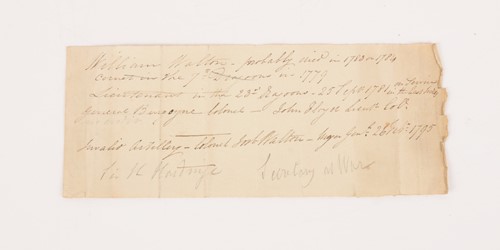 William Walton - probably died in 1783 or 1784
cornet in the 7th Dragoons in 1779
Lieutenant in the 23d Dragoons - 25 Sept 1781
General Burgoyne Colonel - John Floyd Lieut Col.
Invalid Artillery - Colonel Josh Walton - Major Genl. 26 Feby 1795
Sir H Hardinge Secretary at War